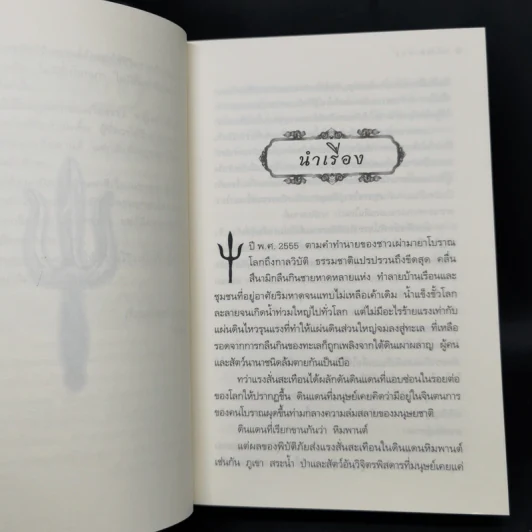 นำเรื่อง
ปี พ.ศ. 2555 ตามคำทำนายของชาวเผ่ามายาโบราณ
โลกถึงกาลวิบัติ ธรรมชาติแปรปรวนถึงขีดสุด คลื่น
สึนามิกลืนกินชายหาดหลายแห่ง ทำลายบ้านเรือนและ
ชุมชนที่อยู่อาศัยริมหาดจนแทบไม่เหลือเค้าเดิม น้ำแข็งขั้วโลก
ละลายจนเกิดน้ำท่วมใหญ่ไปทั่วโลก แต่ไม่มีอะไรร้ายแรงเท่ากับ
แผ่นดินไหวรุนแรงที่ทำให้แผ่นดินส่วนใหญ่จมลงสู่ทะเล ที่เหลือ
รอดจากการกลืนกินของทะเลก็ถูกเพลิงจากใต้ดินเผาผลาญ ผู้คน
และสัตว์นานาชนิดล้มตายกันเป็นเบือ
ทว่าแรงสั่นสะเทือนได้ผลักดันดินแดนที่แอบซ่อนในรอยต่อ
ของโลกให้ปรากฏขึ้น ดินแดนที่มนุษย์เคยคิดว่ามีอยู่ในจินตนาการ
ของคนโบราณผุดขึ้นท่ามกลางความล่มสลายของมนุษยชาติ
ดินแดนที่เรียกขานกันว่า หิมพานต์
แต่ผลของพิบัติภัยส่งแรงสั่นสะเทือนในดินแดนหิมพานต์
เช่นกัน ภูเขา สระน้ำ ป่าและสัตว์อันวิจิตรพิสดารที่มนุษย์เคยแต่